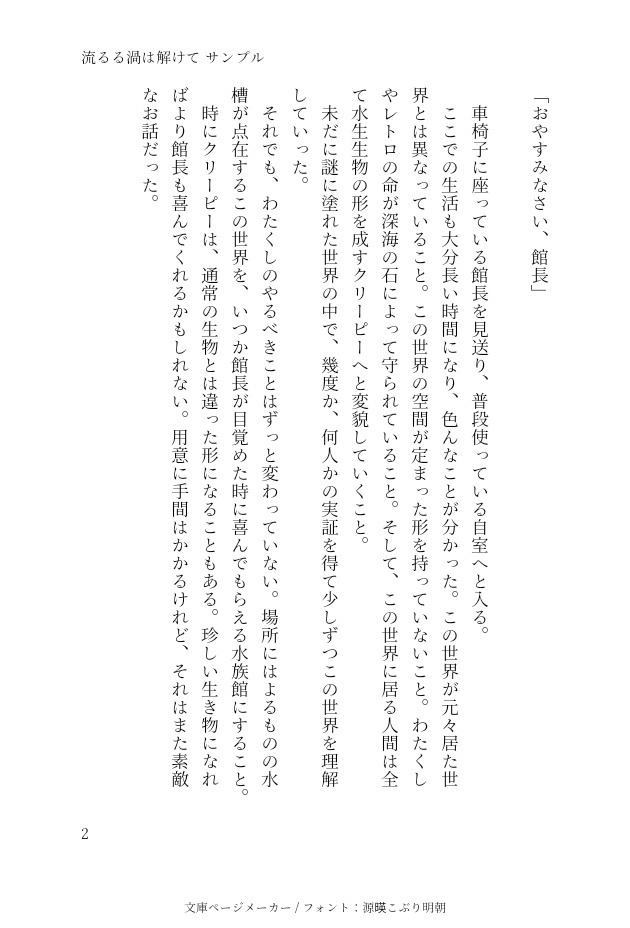 流るる渦は解けて サンプル
「おやすみなさい、館長」
　車椅子に座っている館長を見送り、普段使っている自室へと入る。
　ここでの生活も大分長い時間になり、色んなことが分かった。この世界が元々居た世
界とは異なっていること。この世界の空間が定まった形を持っていないこと。わたくし
やレトロの命が深海の石によって守られていること。そして、この世界に居る人間は全
て水生生物の形を成すクリーピーへと変貌していくこと。
　未だに謎に塗れた世界の中で、幾度か、何人かの実証を得て少しずつこの世界を理解
していった。
　それでも、わたくしのやるべきことはずっと変わっていない。場所にはよるものの水
槽が点在するこの世界を、いつか館長が目覚めた時に喜んでもらえる水族館にすること。
　時にクリーピーは、通常の生物とは違った形になることもある。珍しい生き物になれ
ばより館長も喜んでくれるかもしれない。用意に手間はかかるけれど、それはまた素敵
なお話だった。
2
文庫ページメーカー / フォント：源暎こぶり明朝